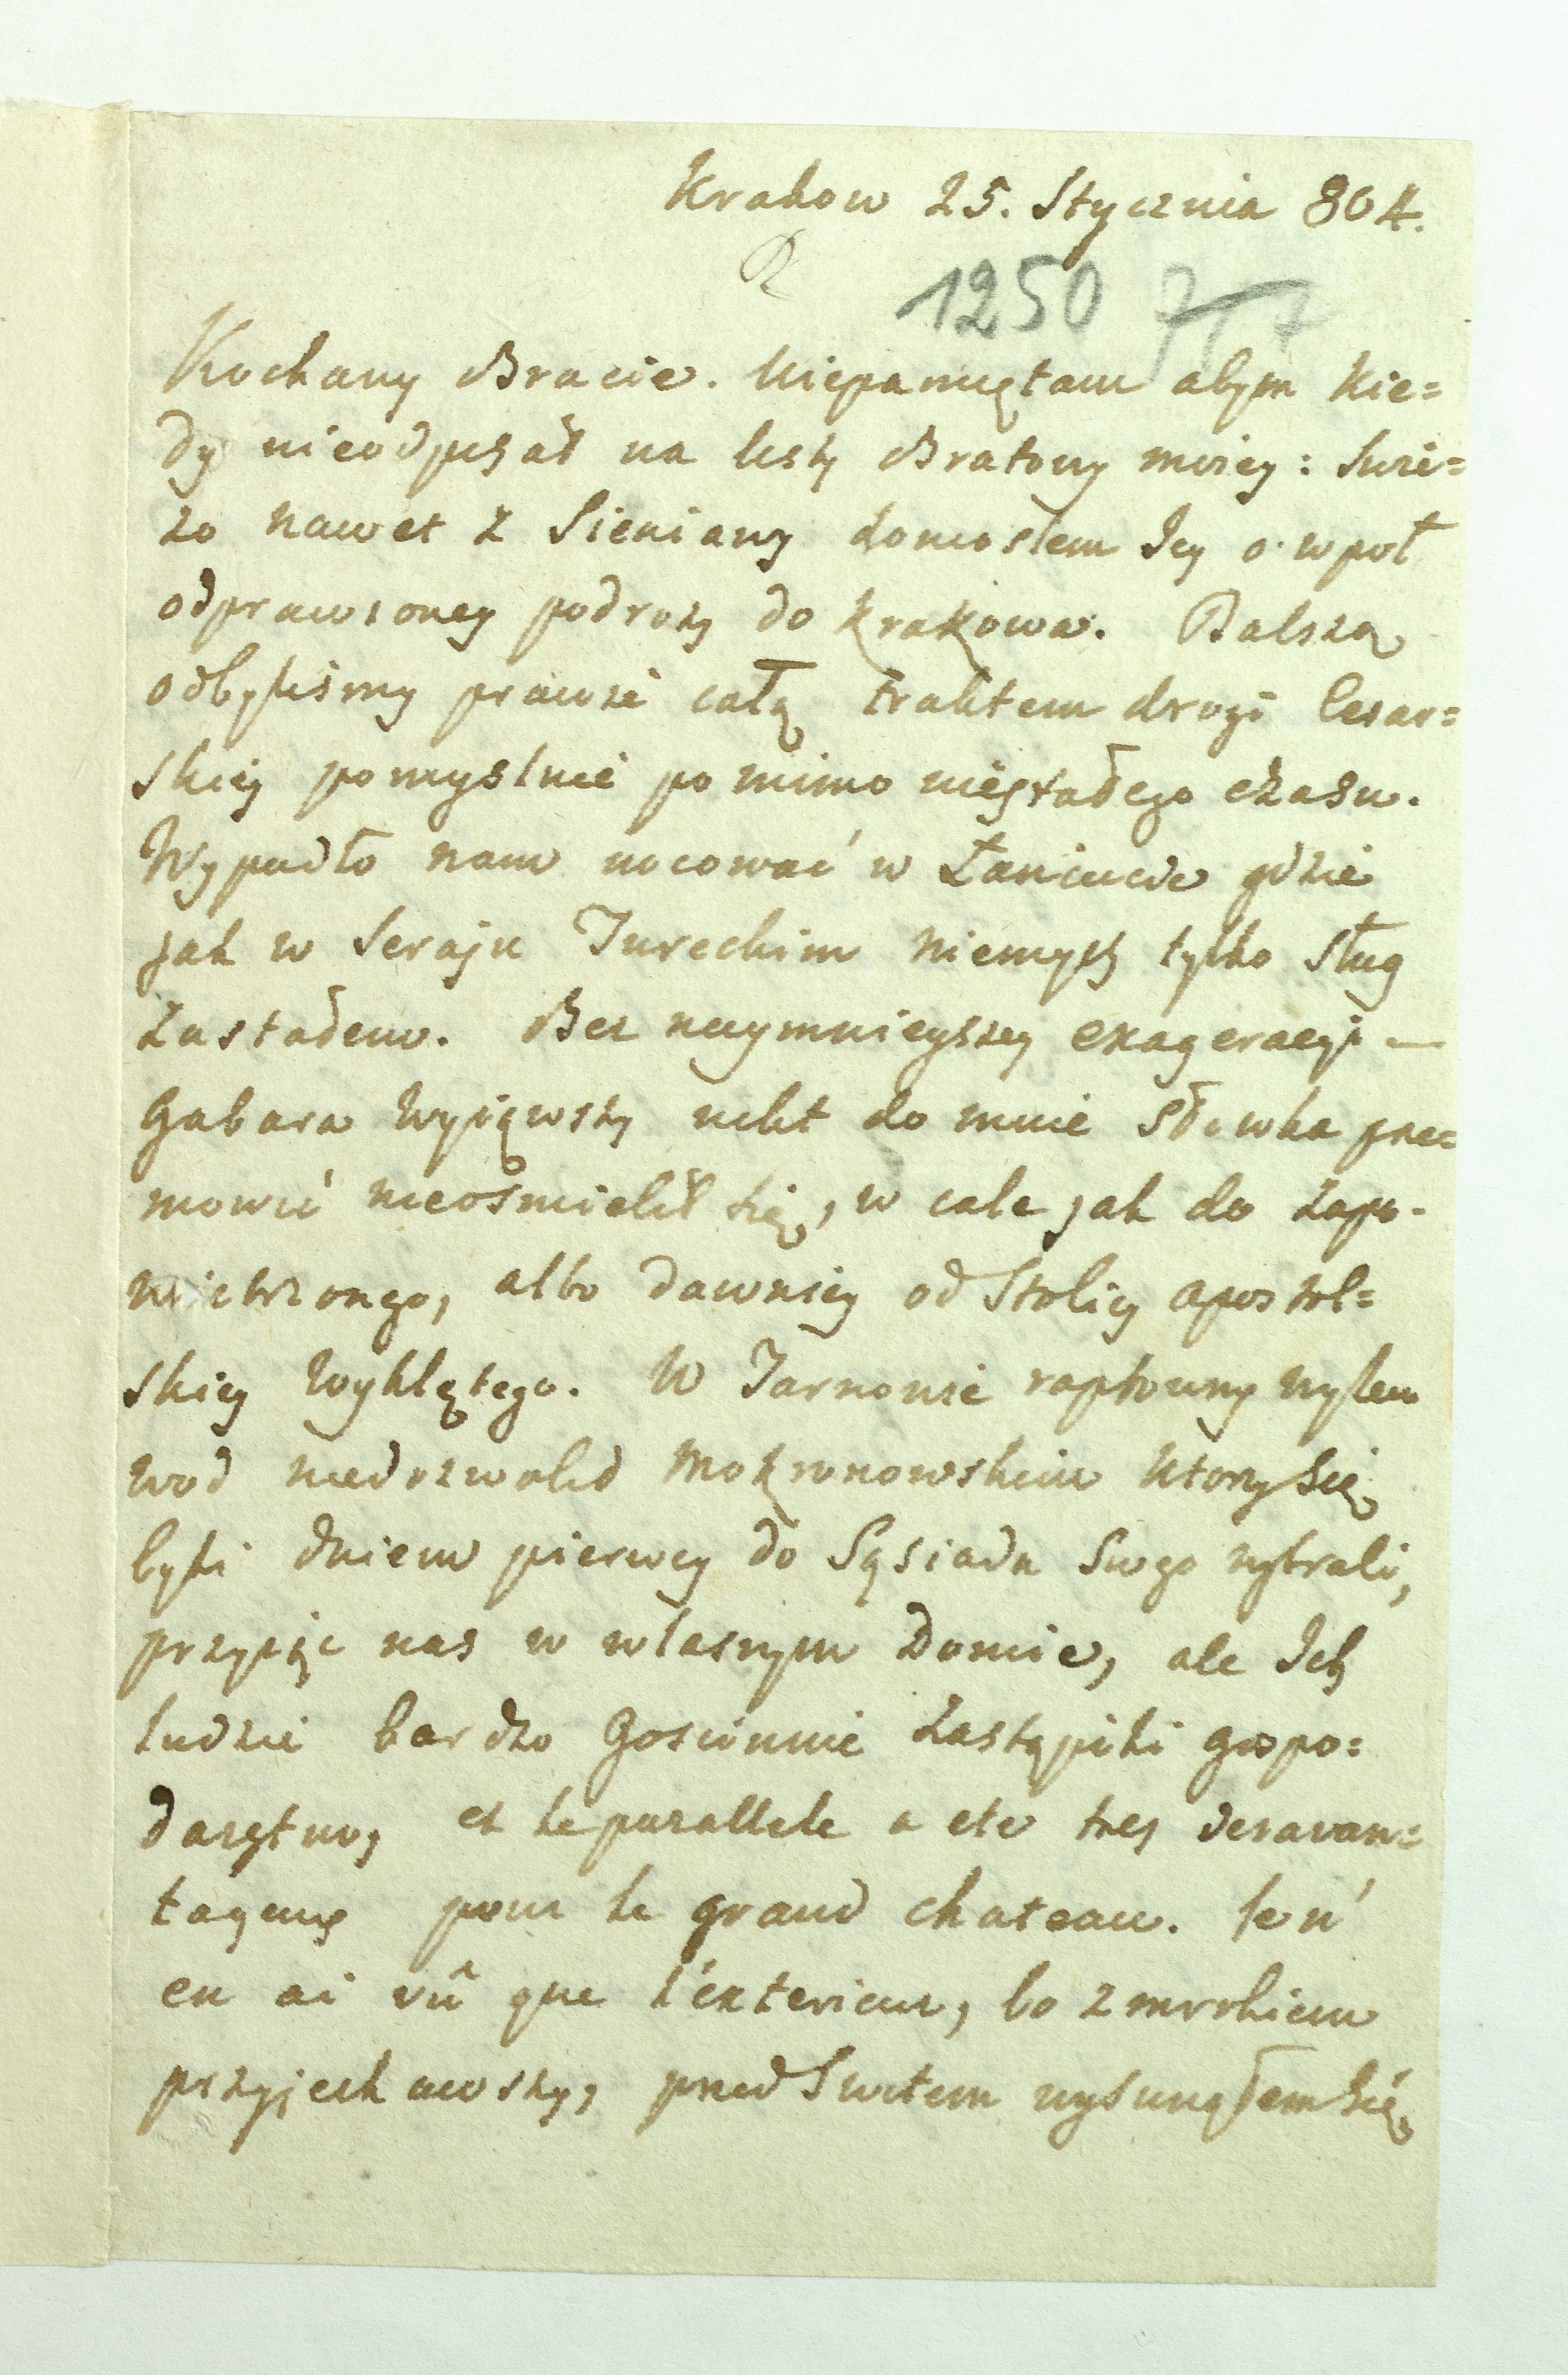 Krakow 25. Stycznia 804.
R
1250 777
Kochany Bracie. Niepamiętam abym kie=
dy nieodpisał na listy Bratowy moiey: swie=
zo nawet z Sieniawy doniosłem Jey o wpoł
odprawioney podroży do Krakowa. Dalszą
odbyliśmy prawie całą traktem drogi Cesar=
skiey pomyslnie pomimo niestałego czasu.
Wypadło nam nocować w Łancucie gdzie
jak w Seraju Tureckim niemych tylko sług
zastałem. Bez naymnieyszey exageracyi —
Gabara wyjąwszy nikt do mnie słowka prze=
mowić nieosmielił się, w cale jak do zapo-
wietrzonego, albo dawniey od Stolicy apostol=
skiey wyklętego. W Tarnowie raptowny wylew
wod niedozwolił Mokronowskim ktorzy się
byli dniem pierwey do Sąsiada swego wybrali,
przyjąc nas w własnym Domie, ale Ich
ludzie bardzo Goscinnie zastąpili gospo=
darstwo, et le parallele a ete tres desavan=
tageux pour le grand chateau. Je n'
en ai vû que l'exterieur, bo z mrokiem
przyjechawszy, przed switem wysunąłem się